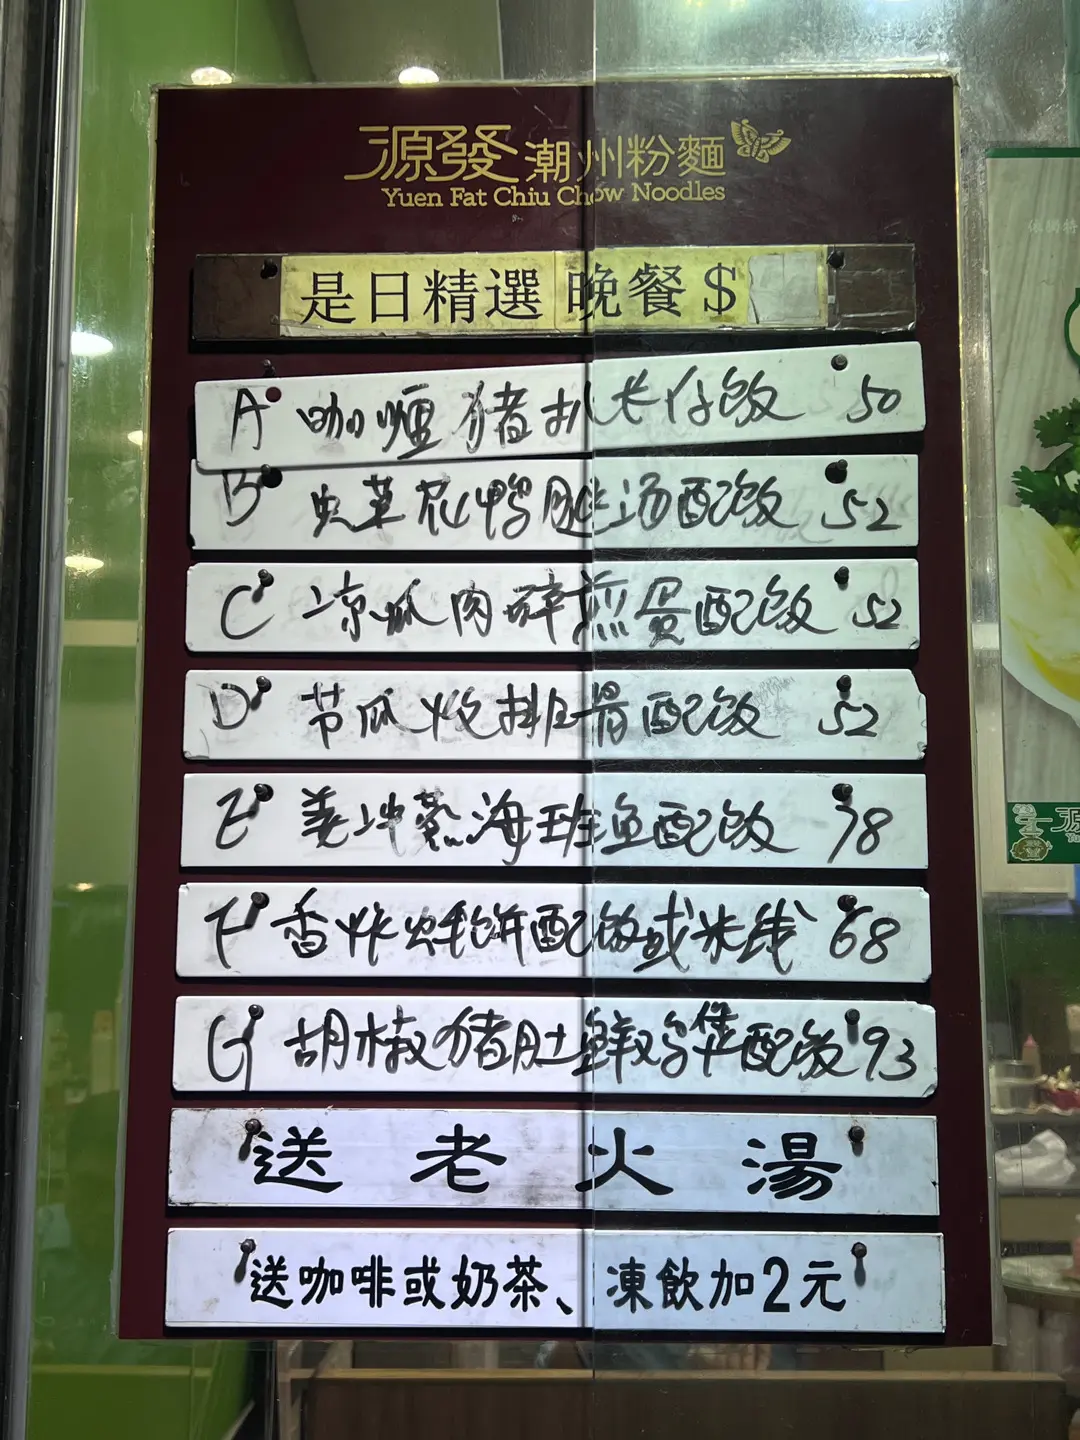 源發潮州粉麵
Yuen Fat Chiu Chow Noodles
是日精選 晚餐 $
A 咖喱猪扒仔饭 50
B 虫草花鸭汤配饭 52
C 凉瓜肉碎煎蛋配饭 52
D 节瓜炆排骨配饭 52
E 姜冲蒸海班鱼配饭 78
F 香炸蚝饼配饭或米线 68
G 胡椒猪肚鲜鸡煲配饭 93
送老火湯
送咖啡或奶茶、凍飲加2元